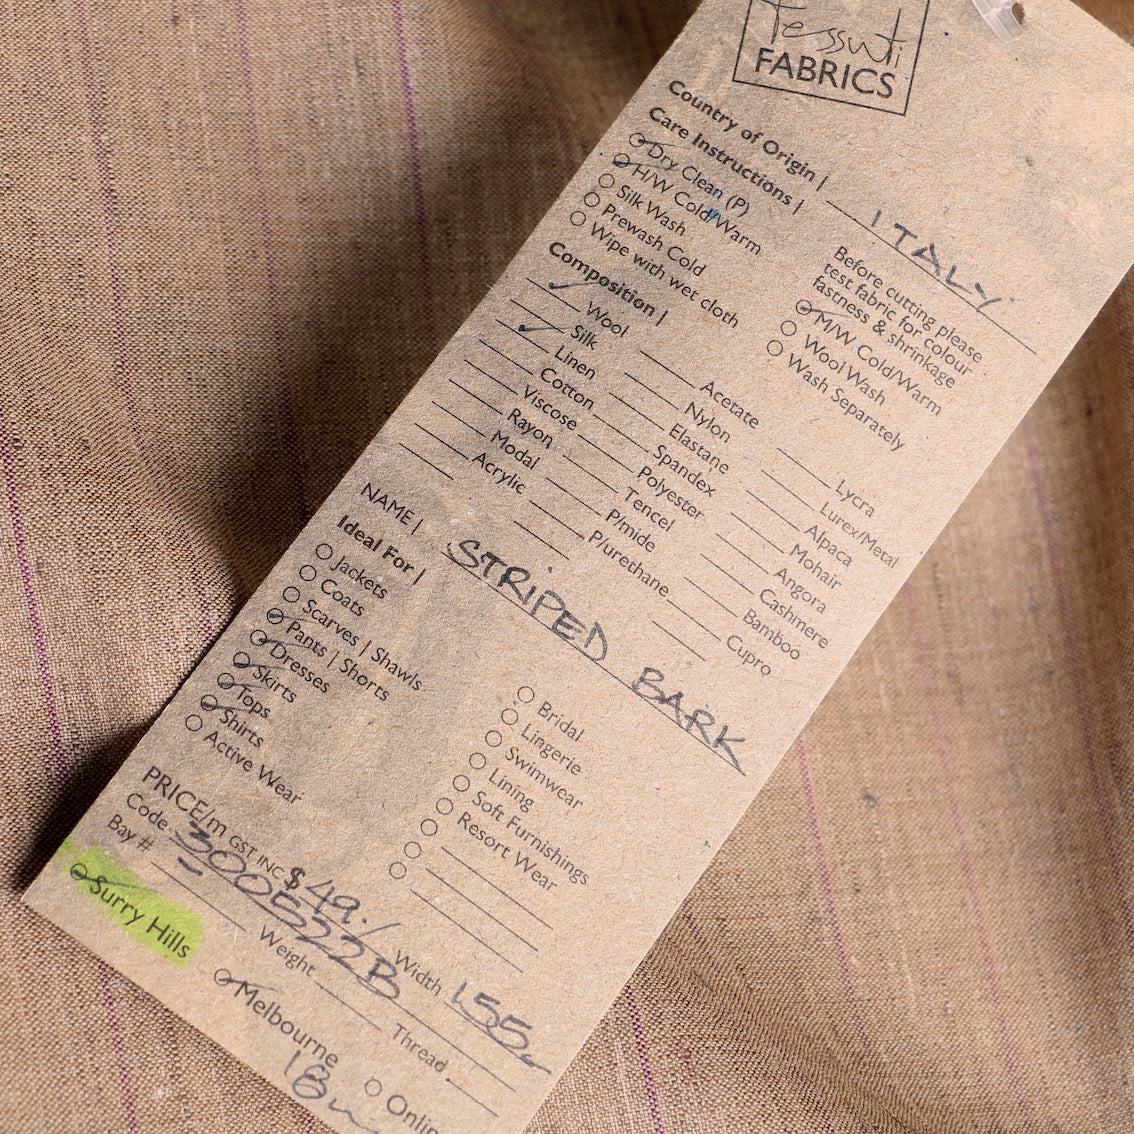 tessuti
FABRICS
Country of Origin | ITALY
Care Instructions |
Dry Clean (P)
H/W Cold/Warm
Silk Wash
Prewash Cold
Wipe with wet cloth
Before cutting please
test fabric for colour
fastness & shrinkage
M/W Cold/Warm
Wool Wash
Wash Separately
Composition |
Wool
Silk
Linen
Cotton
Viscose
Rayon
Modal
Acrylic
Acetate
Nylon
Elastane
Spandex
Polyester
Tencel
P/mide
P/urethane
Lycra
Lurex/Metal
Alpaca
Mohair
Angora
Cashmere
Bamboo
Cupro
NAME | STRIPED BARK
Ideal For |
Jackets
Coats
Scarves | Shawls
Pants | Shorts
Dresses
Skirts
Tops
Shirts
Active Wear
Bridal
Lingerie
Swimwear
Lining
Soft Furnishings
Resort Wear
PRICE/m GST INC $49./
Code 300522B Width 155
Bay # Weight Thread
Surry Hills Melbourne Onlin
18